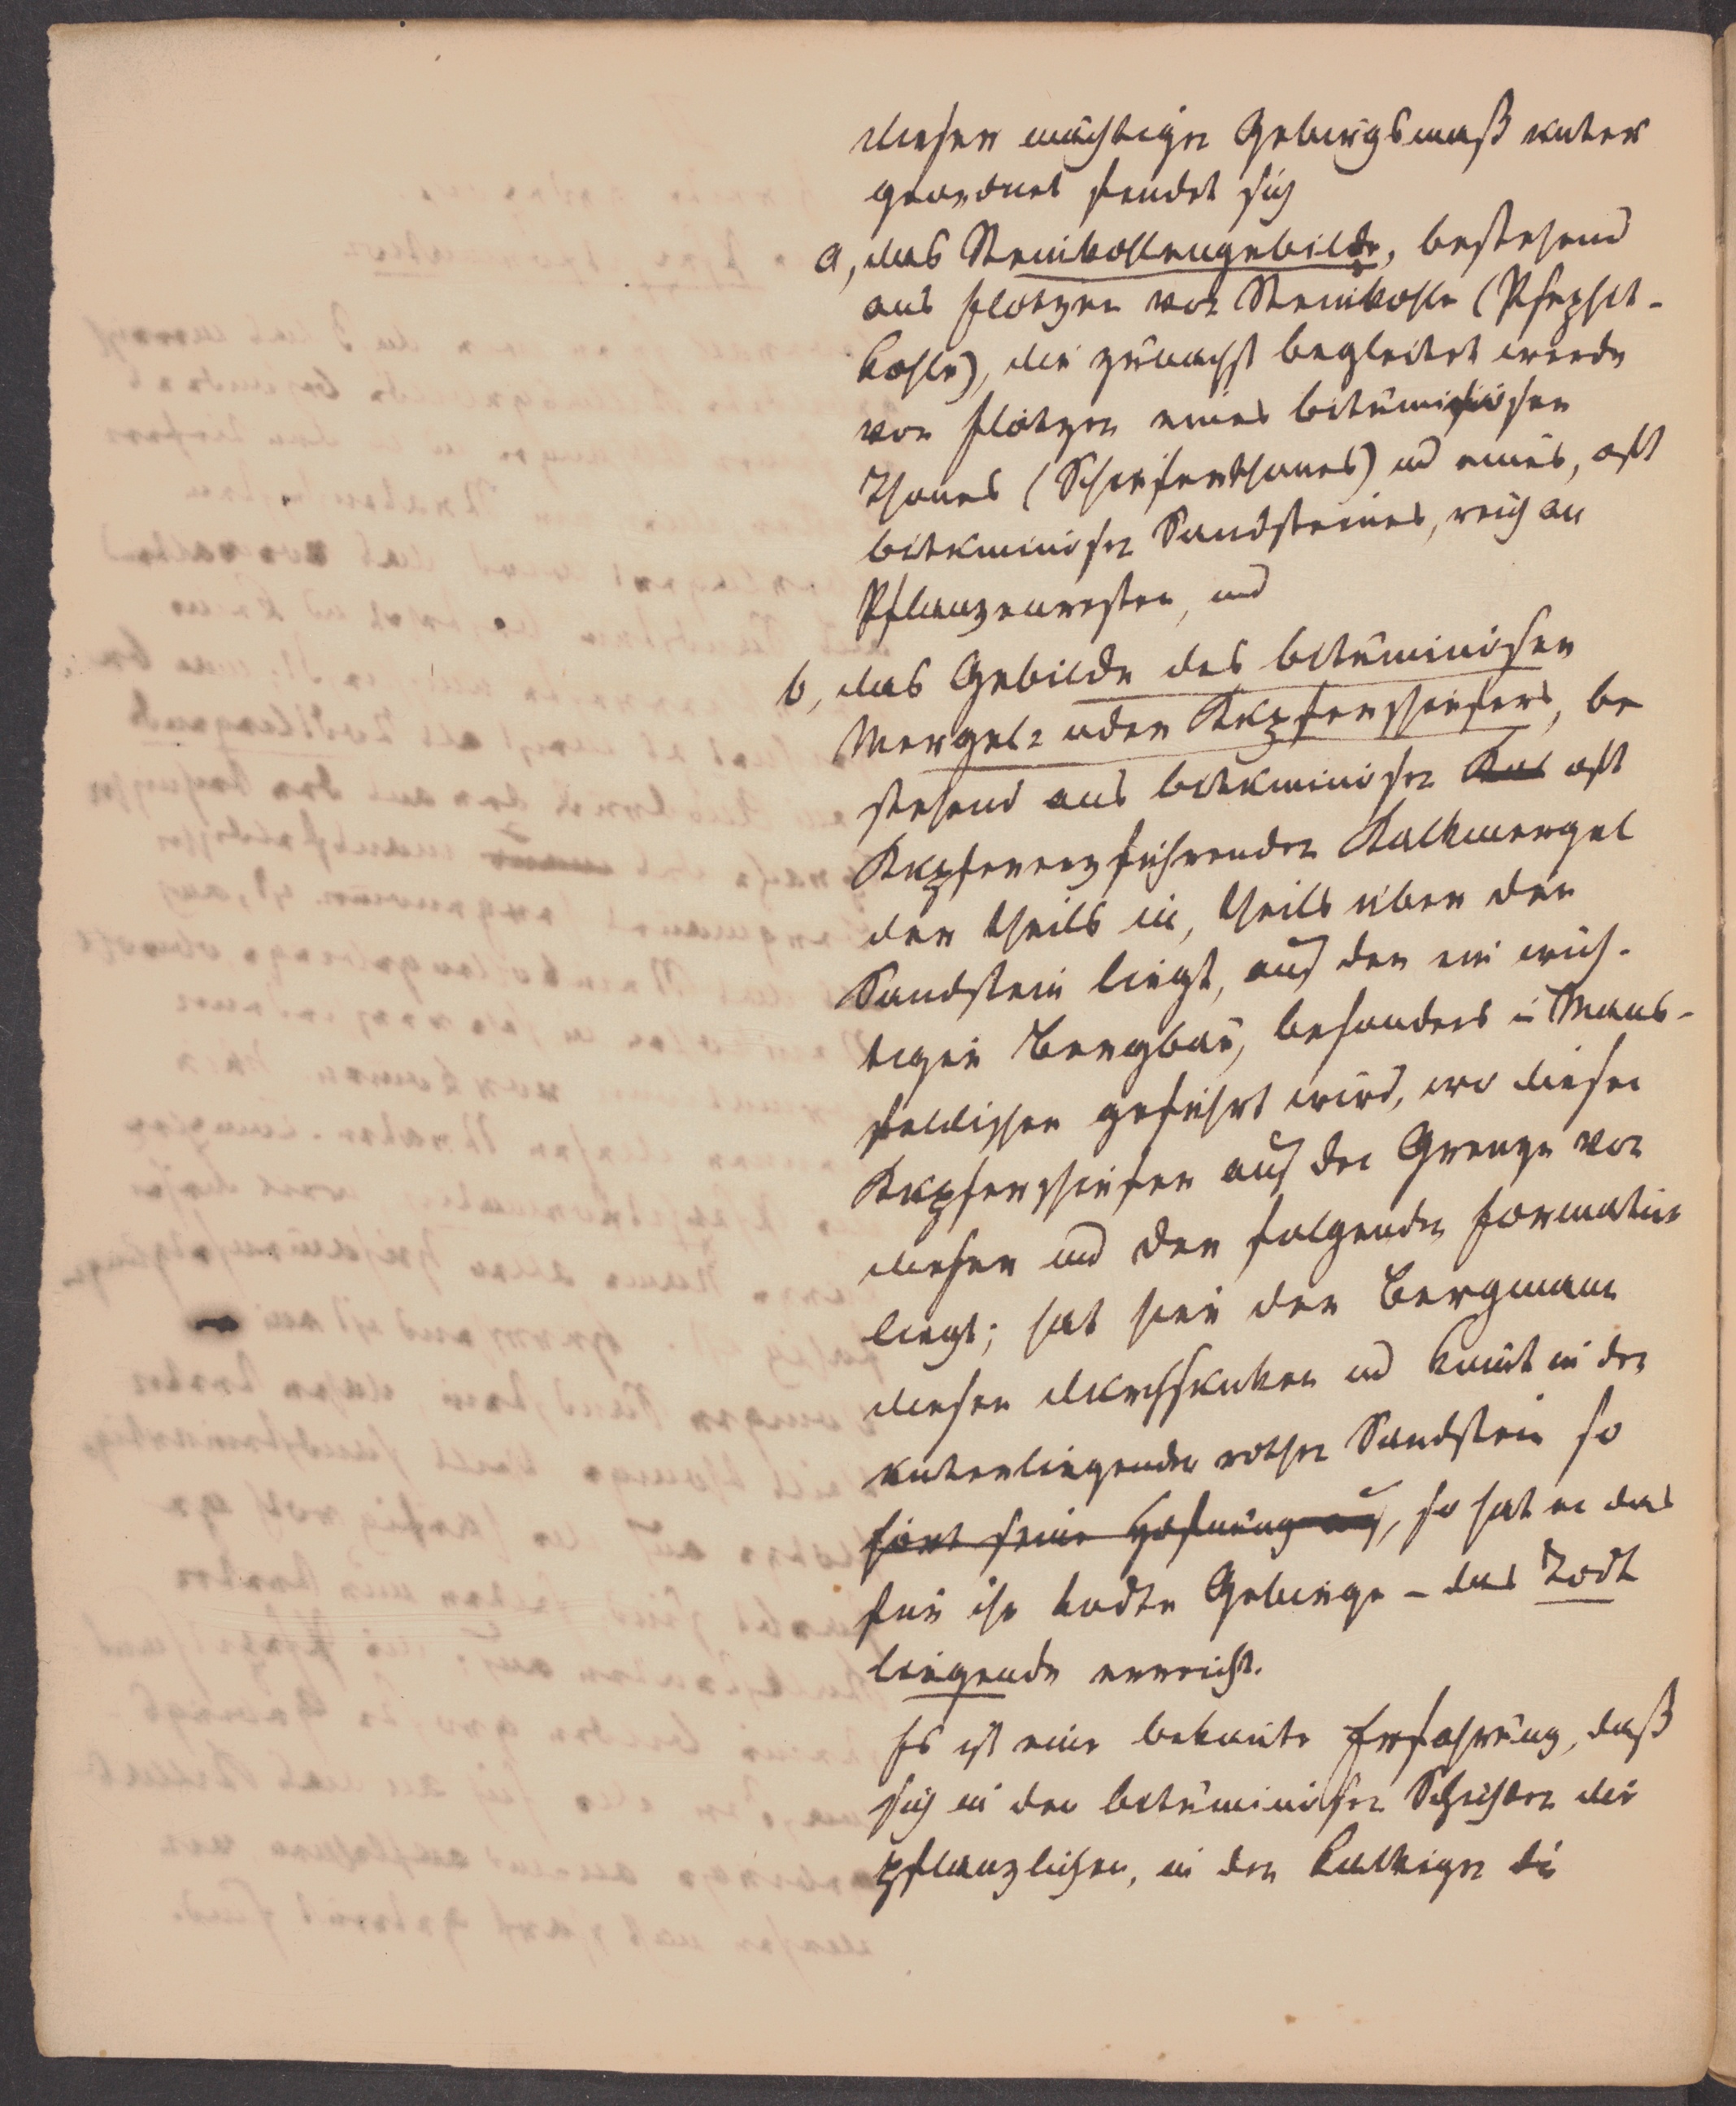 dieser mächtigen Gebirgsmaß unter
geordnet findet sich
a, das Steinkohlengebilde, bestehend
aus Flötzen von Steinkohle (Pfepfit-
kohle), die zunächst begleitet werde
von Flötzen eines bituminösen
Thones (Schieferthones) und eines, oft
bituminösen Sandsteines, reich an
Pflanzenresten, und
b, das Gebilde des bituminösen
Mergel- oder Kupferschiefers, be
stehend aus bituminösen oft
Kupfererz führenden Kalkmergel
der theils in, theils über den
Sandstein liegt, auf den ein wich-
tiger Bergbau, besonders in Mans-
feldischen geführt wird, wo dieser
Kupferschiefer auf der Grenze von
dieser und der folgenden Formation
liegt; hat hier der Bergmann
diesen durchsunken und kömt in den
unterliegenden rothen Sandstein so
hört seine Hofnung auf, so hat er das
für ihn todte Gebirge – das Todt
liegende erreicht.
Es ist eine bekannte Erfahrung, daß
sich in den bituminösen Schichten die
pflanzlichen, in den kalkigen die